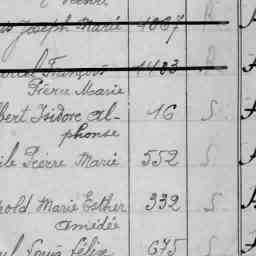 Joseph Marie 1067
François 1103
Pierre Marie
bert Isidore Al- 16 S
phonse
ile Pierre Marie 552 S
old Marie Esther 332 S
Amédée
ul Louis Félix 675 S